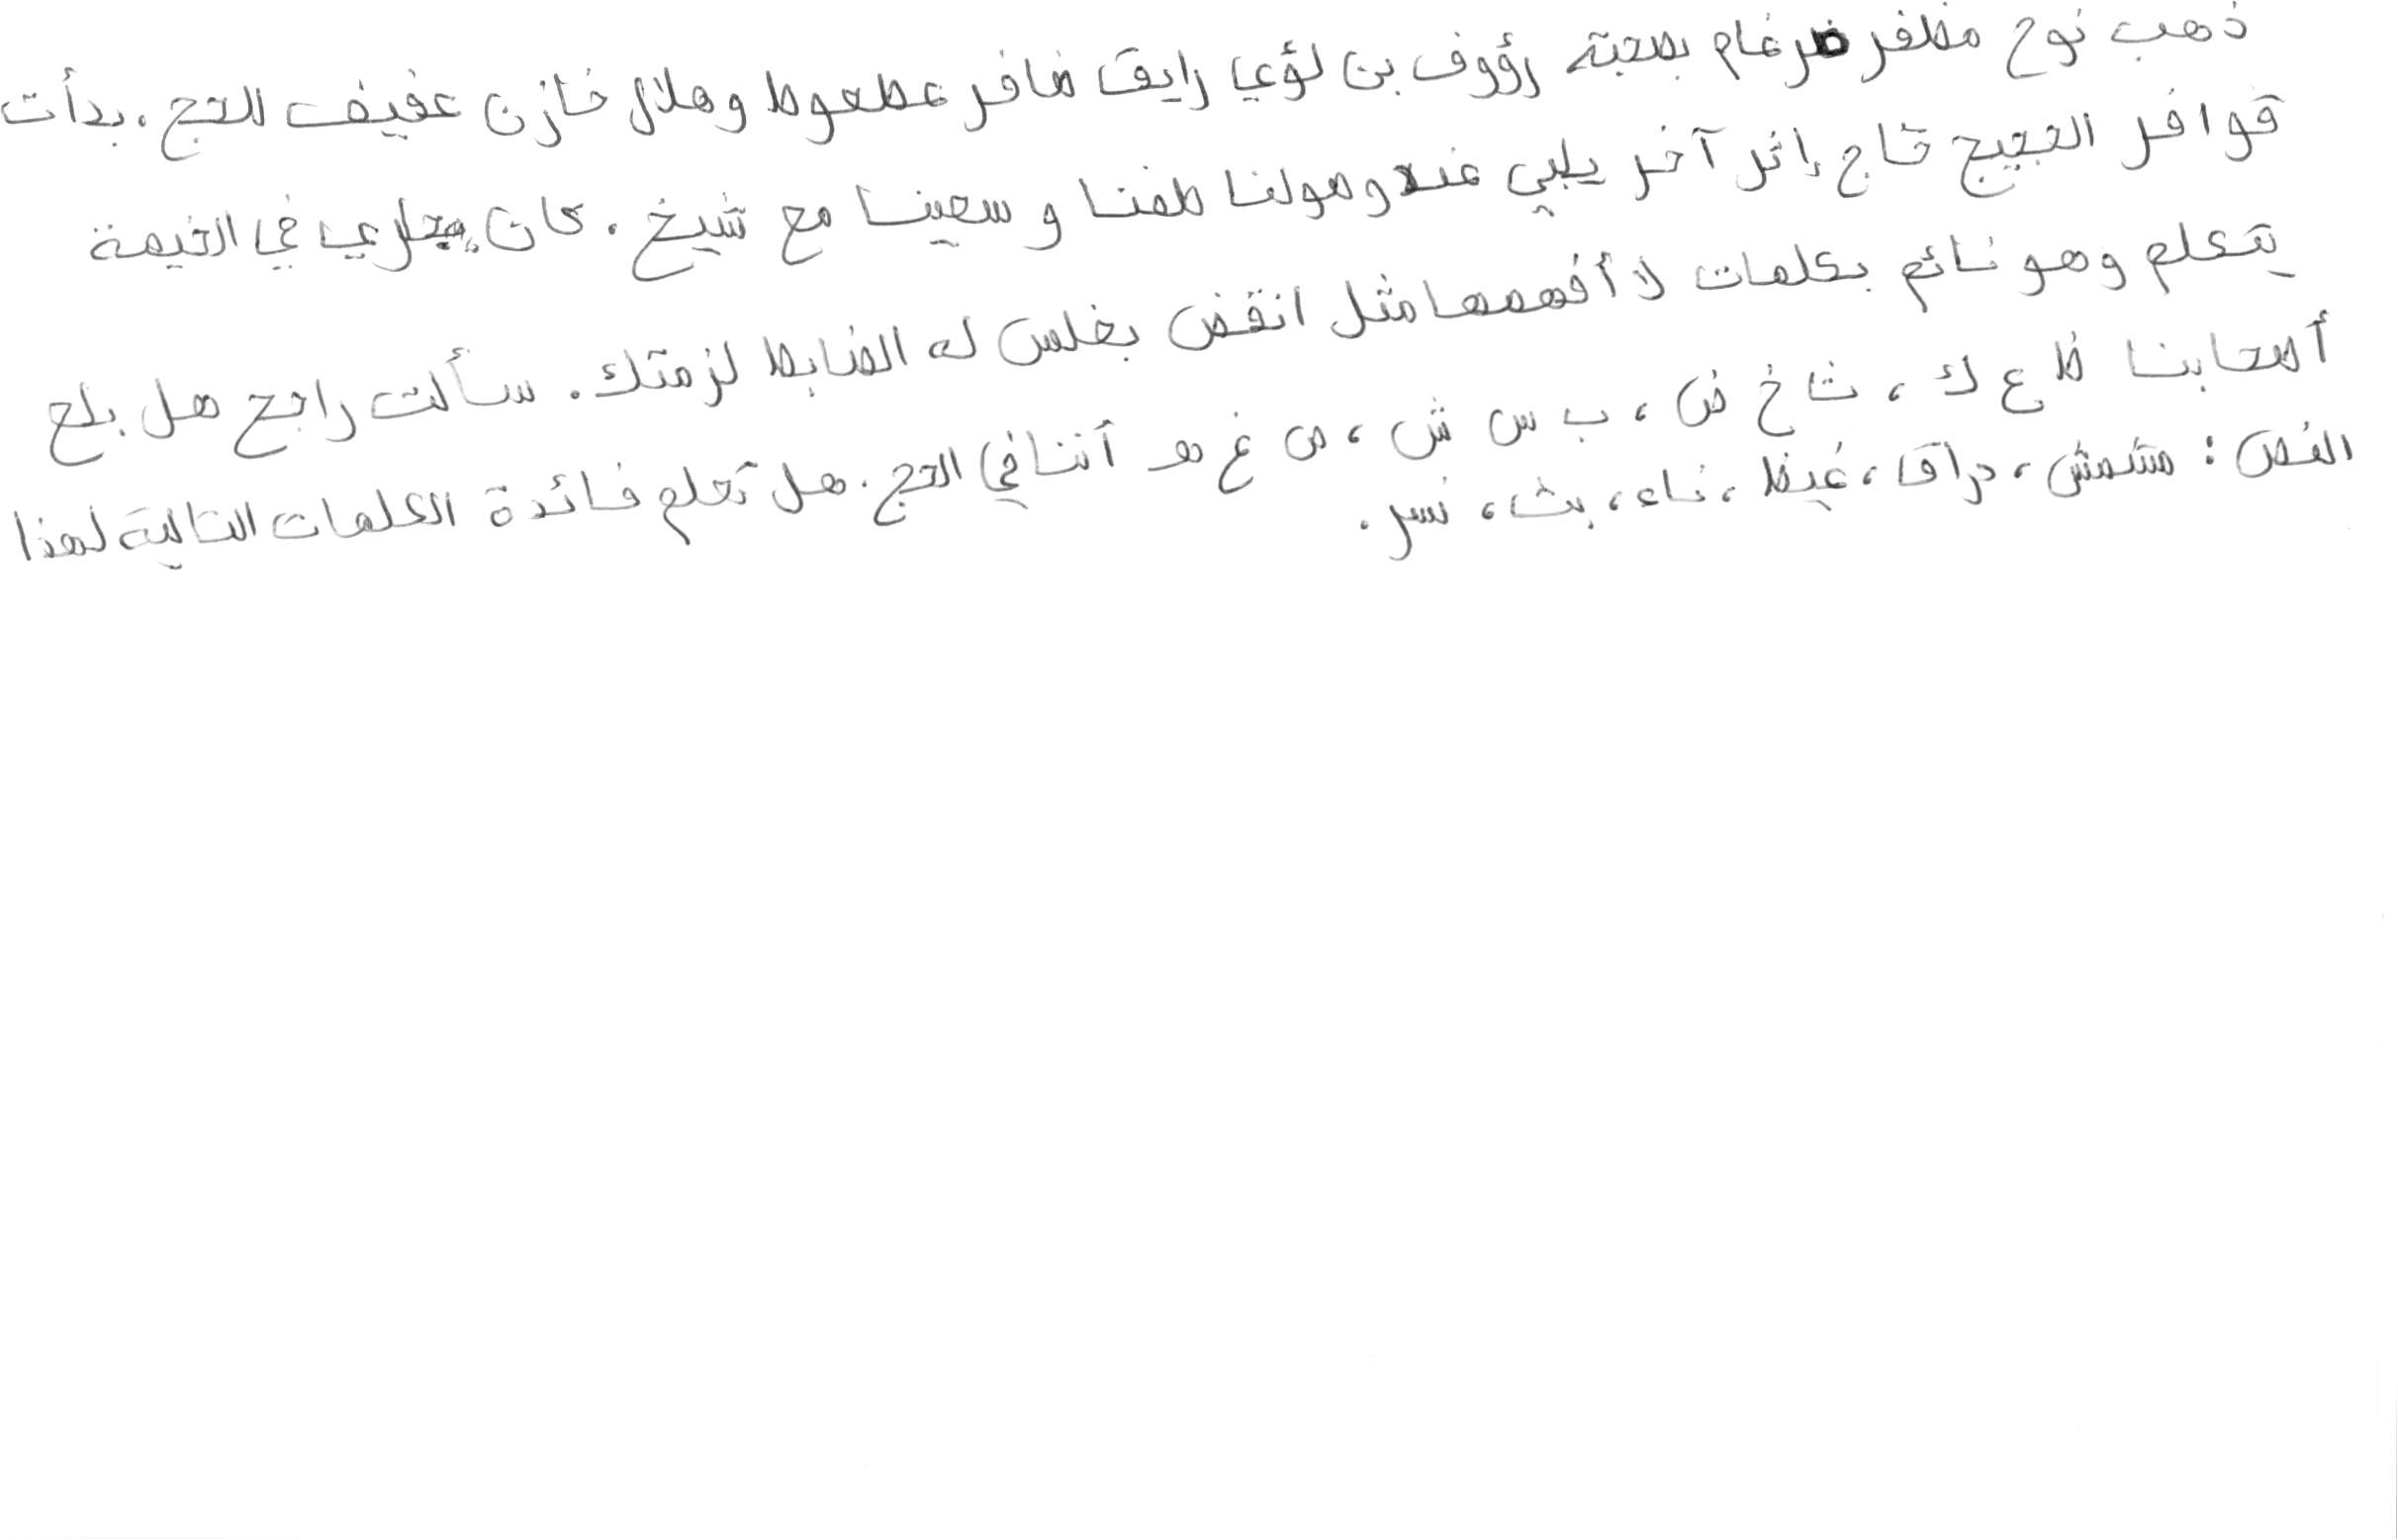 ذهب نوح مظفر ضرغام بصحبته رؤوف بن لؤي رايق ضافر عطعوط وهلال خازن عفيف للحج. بدأت
قوافر الحجيج تاج إثر آخر يلبي عند وصولنا طفنا وسعينا مع شيخ. كان بجاري في الخيمة
يتكلم وهو نائم بكلمات لا أفهمها مثل انقض بخلس له الضابط لزمتك. سألت راجح هل بلغ
أصحابنا ظ ع ك، ث خ ض، ب س ش، ص غ هـ أننا في الحج. هل تعلم فائدة الكلمات التالية لهذا
النص: مشمش، دراق، غيظ، ناء، بث، نسر.